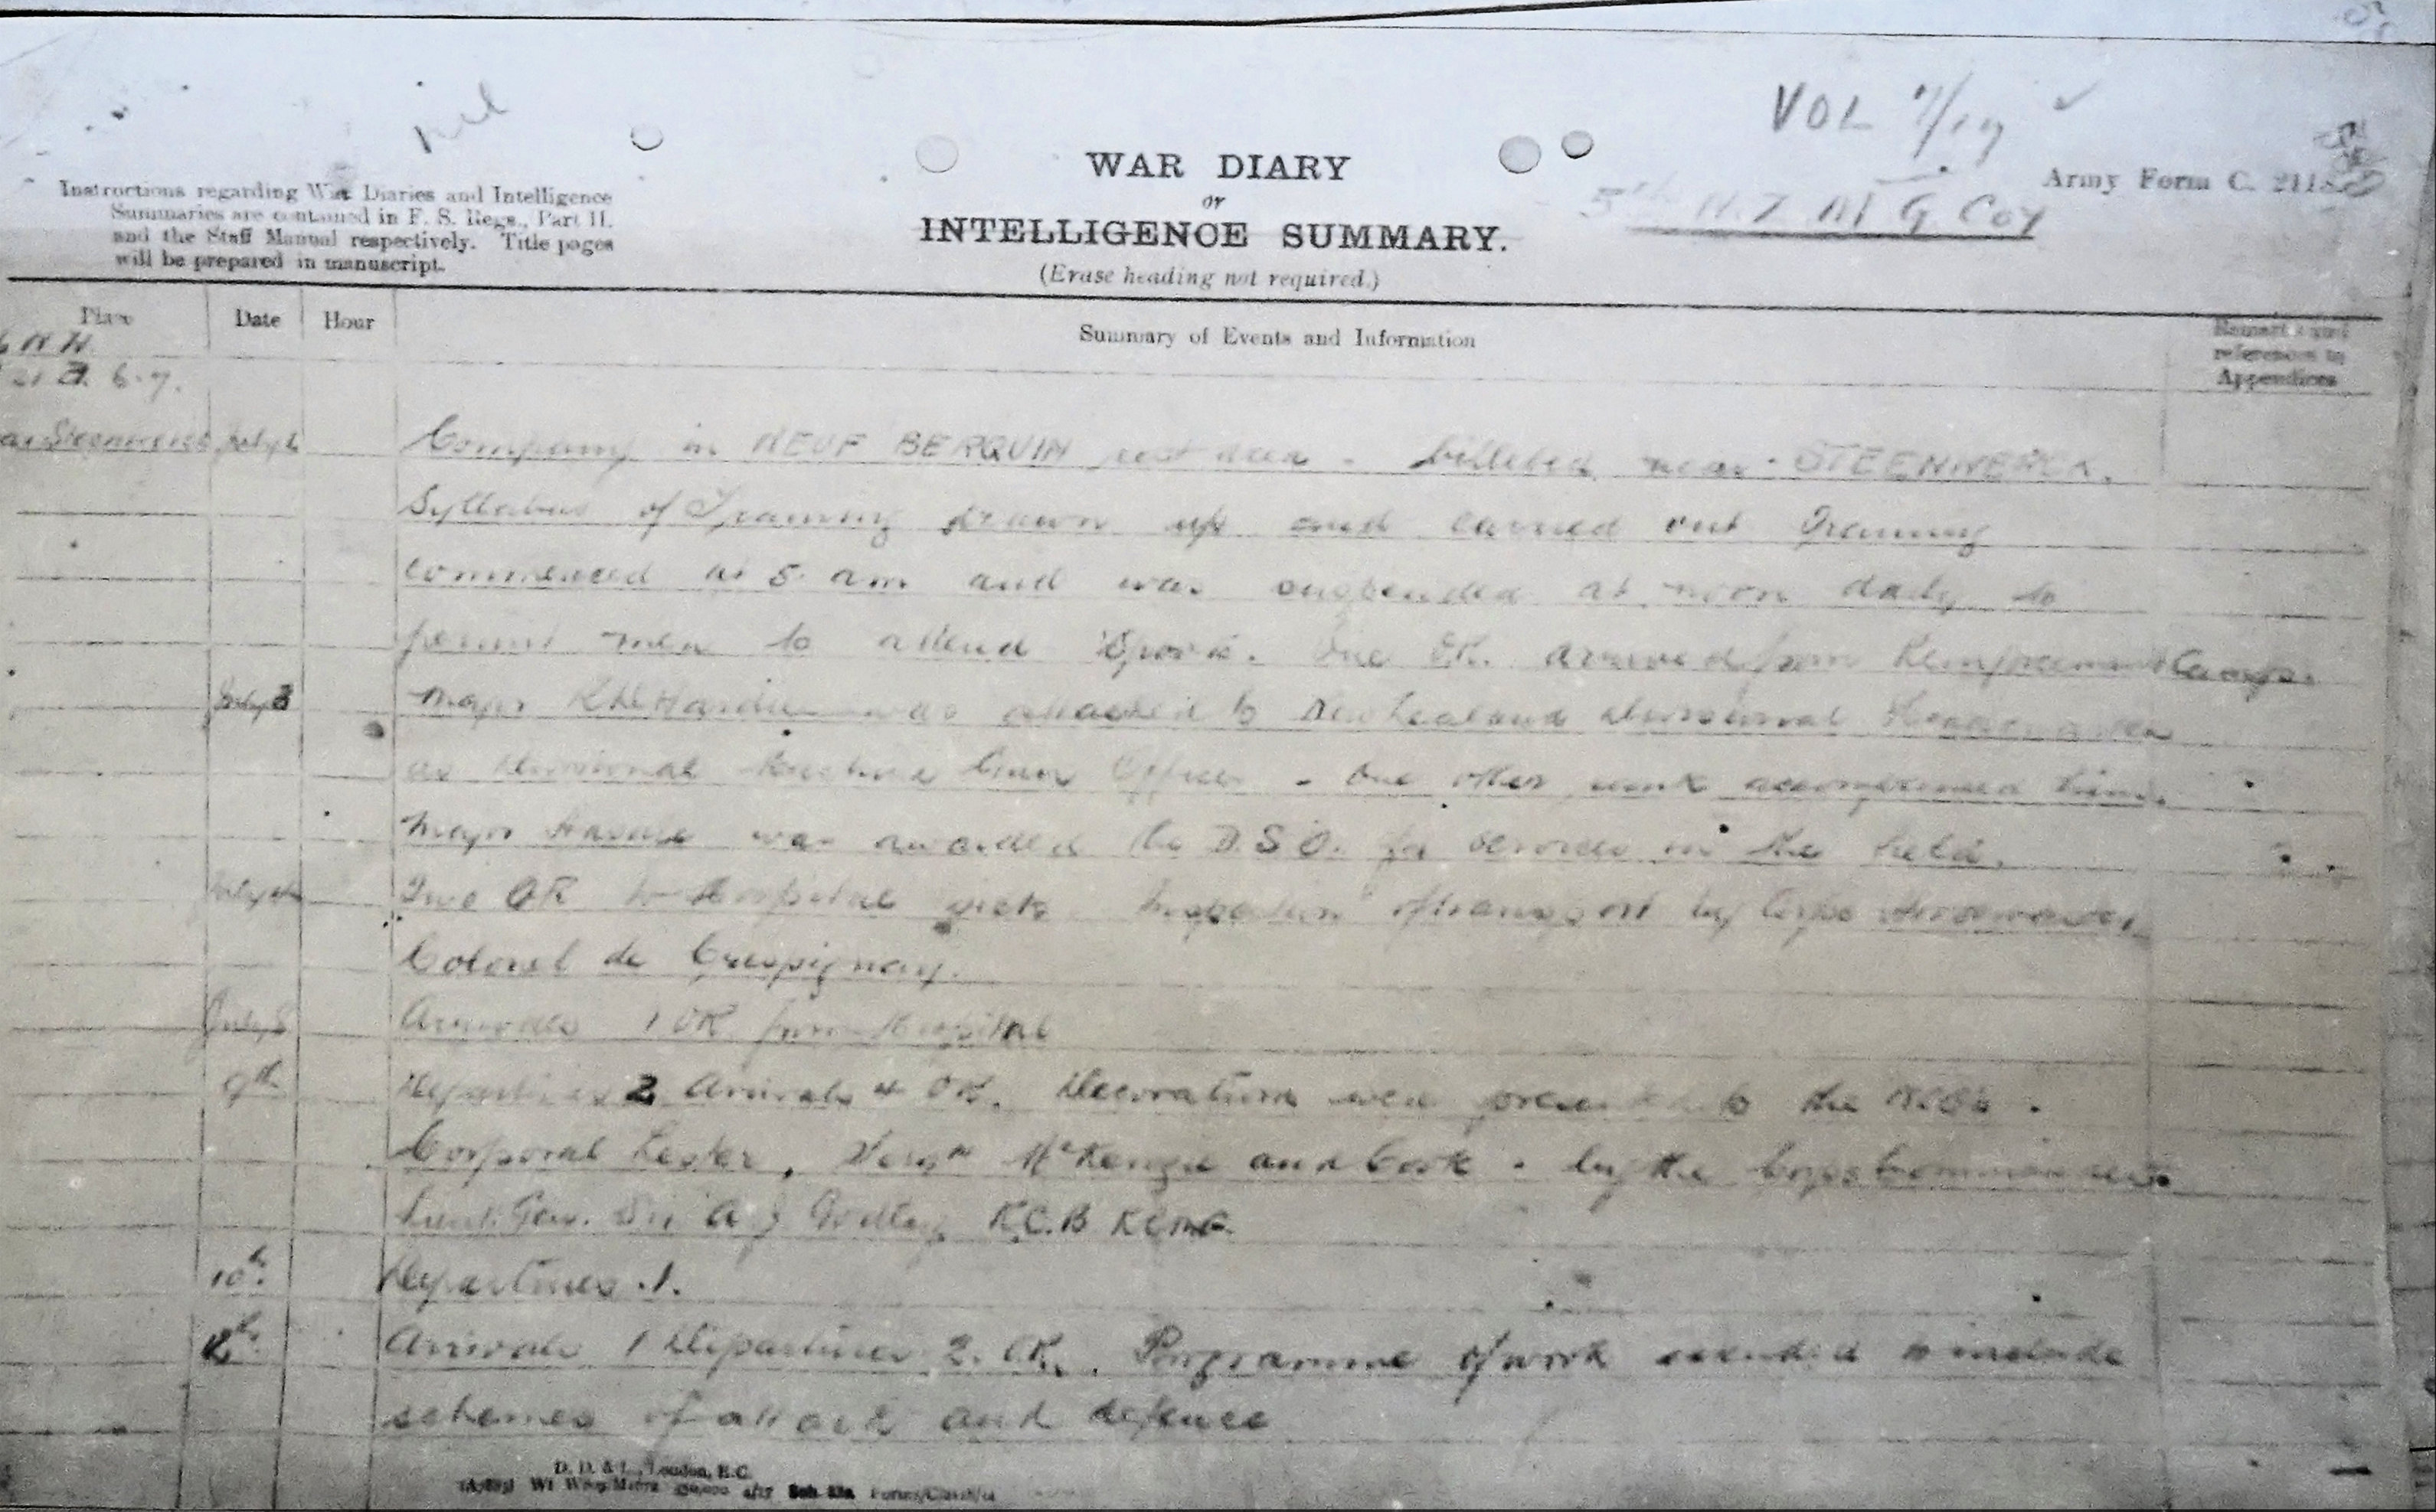 VOL
WAR DIARY
or
INTELLIGENCE SUMMARY.
(Erase heading not required.)
Army Form C. 2118
5th N.Z. M G Coy
Instructions regarding War Diaries and Intelligence
Summaries are contained in F. S. Regs., Part II.
and the Staff Manual respectively. Title pages
will be prepared in manuscript.
Place Date Hour Summary of Events and Information Remarks and
references to
Appendices
Company in NEUF BERQUIN rest area - billeted near STEENWERCK.
Syllabus of Training drawn up and carried out Training
commenced at 5. am and was suspended at noon daily to
permit men to attend Sports. One OR. arrived from Reinforcement Camp.
July 3 Major was attached to New Zealand Divisional
as Divisional Machine Gun Officer - One other rank accompanied him.
Major was awarded the D.S.O. for services in the field.
Two OR to Hospital sick Inspection of transport by Corps
Colonel de Crespigney.
July 8 Arrivals 1 OR from Hospital
9th Departures 2 Arrivals 4 OR. Decorations were presented to the
Corporal Lester, McKenzie and Cook - by the Corps Commander
Lieut. Gen. Sir A J Godley K.C.B KCMG
10th Departures 1.
12th Arrivals 1 Departures 2. OR. Programme of work to include
schemes of attack and defence
D. D. & L., London, E.C.